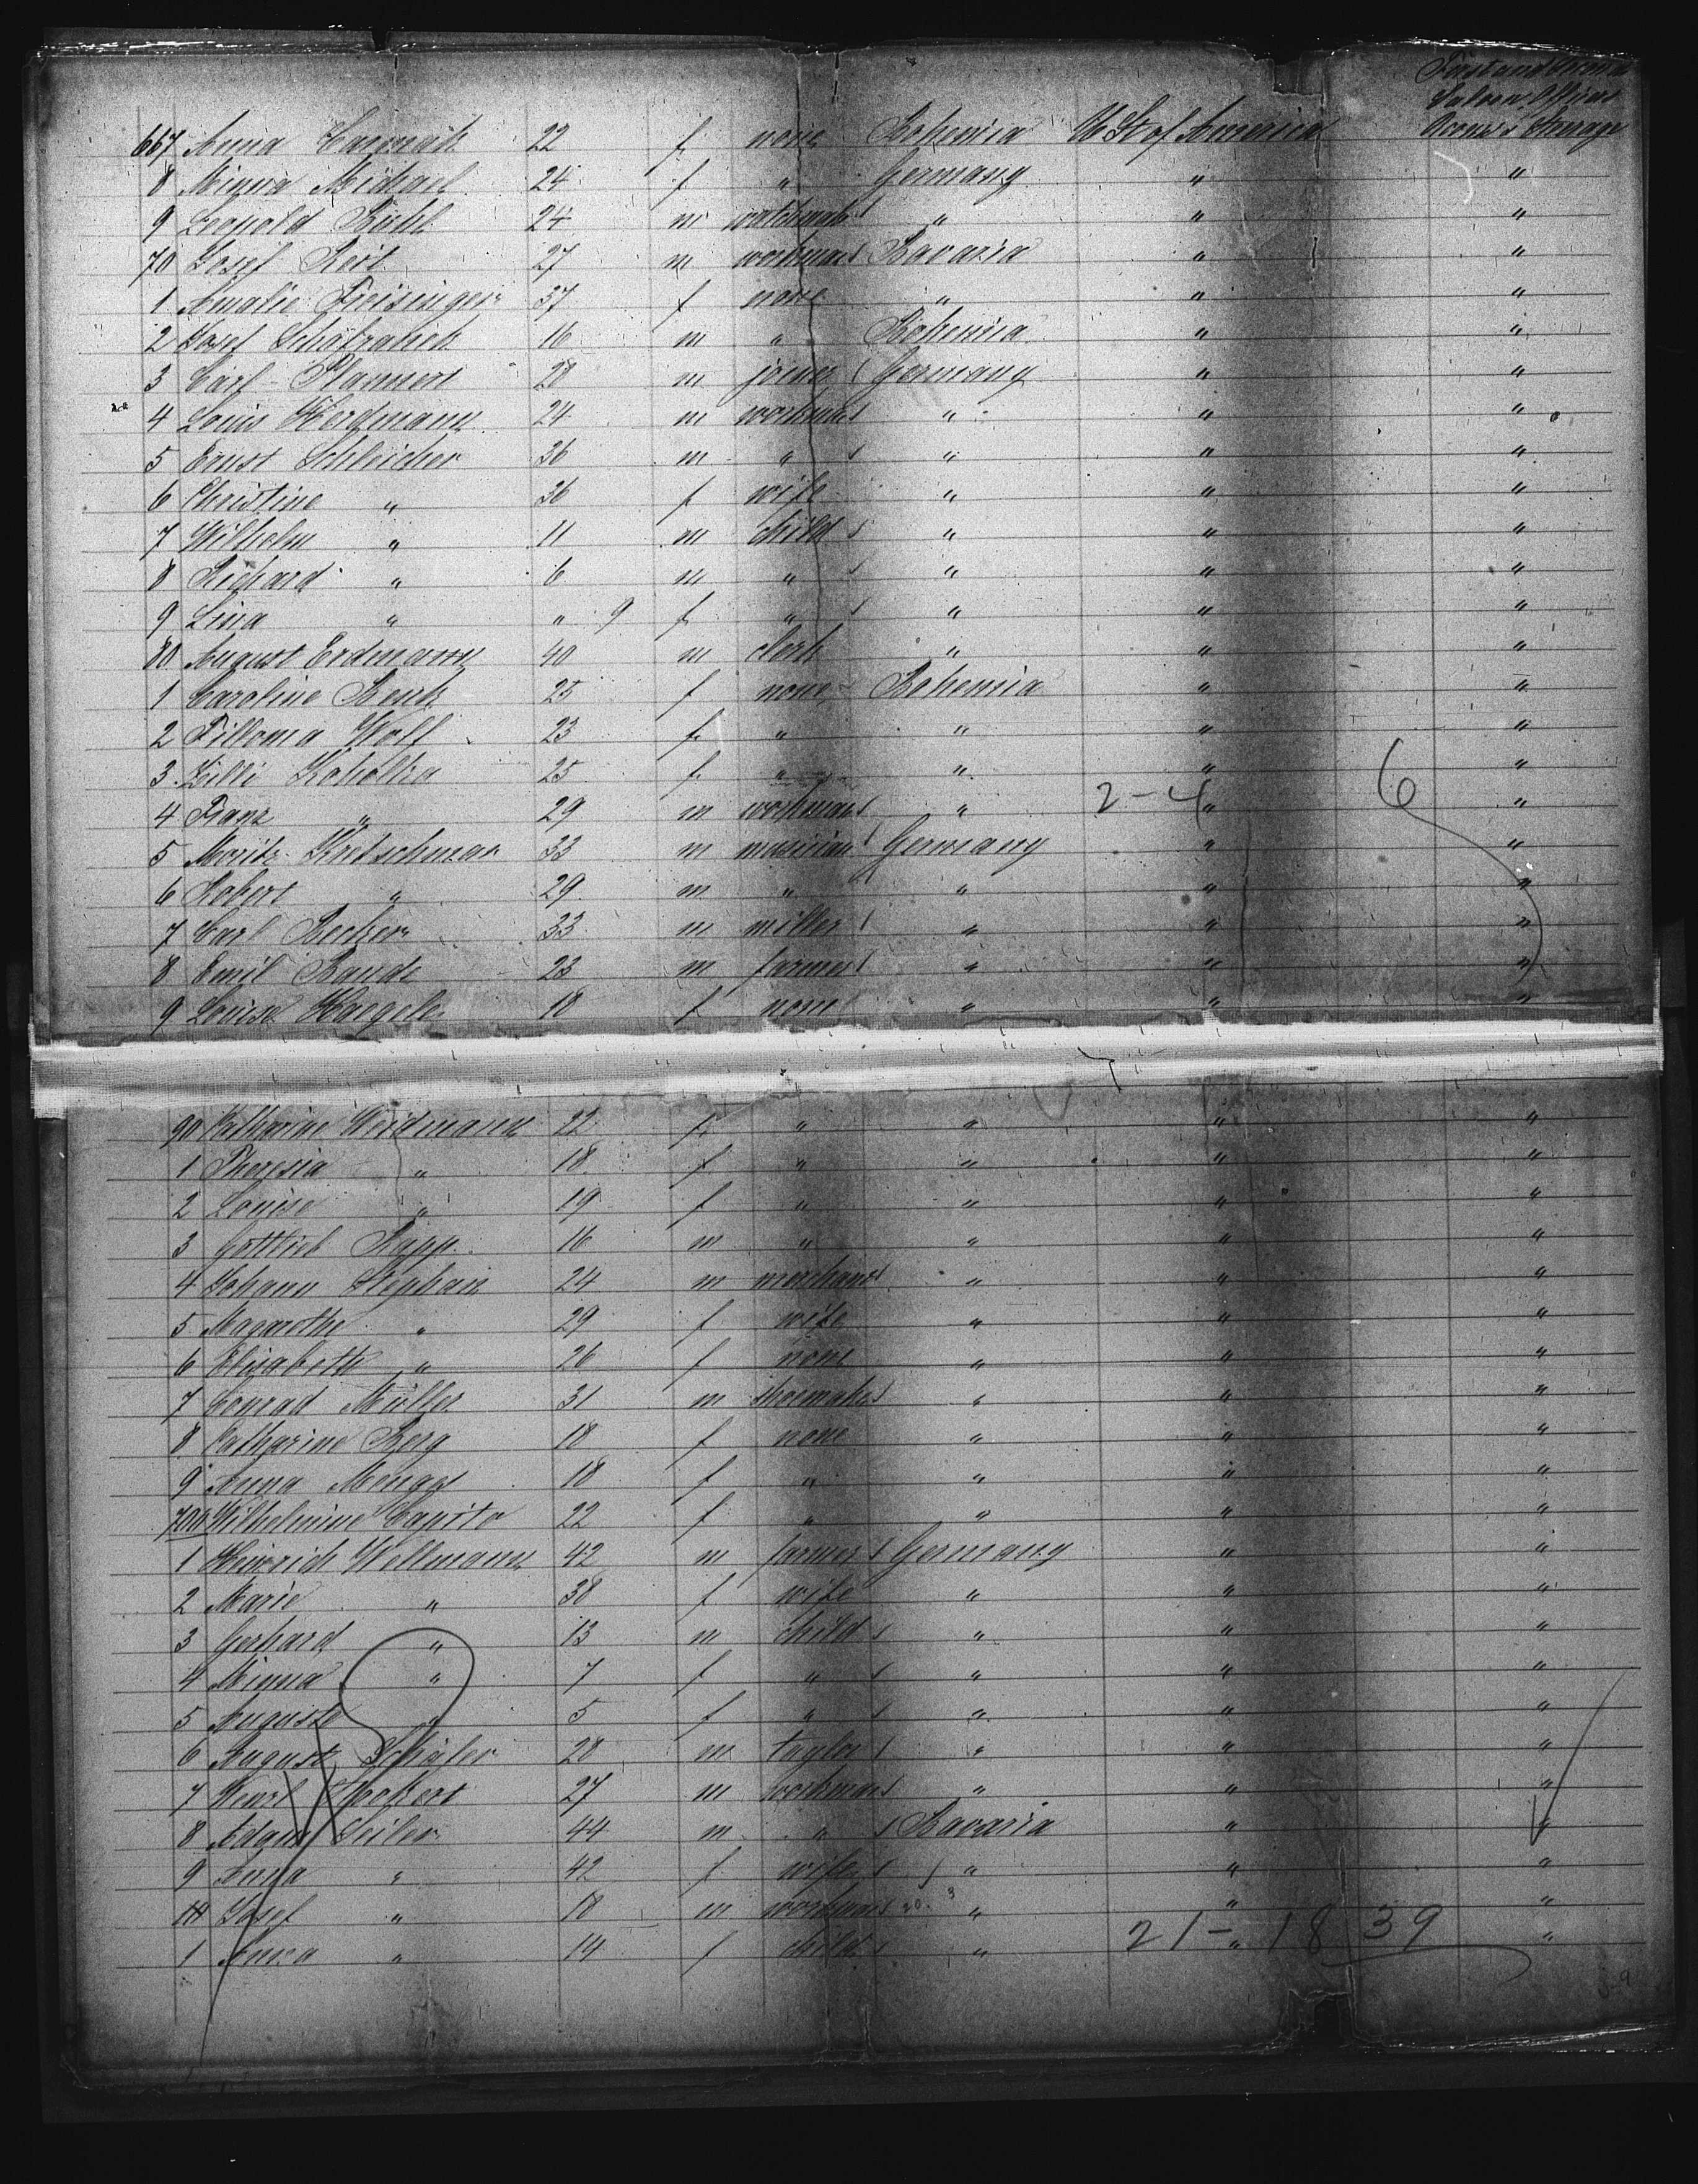 First and Second
Saloon Officers
667 Anna 22 f none Bohemia U St of America Rooms & Steerage
8 Minna Michael 24 f " Germany " "
9 Leopold 24 m watchmaker " " "
70 Josef 27 m workman Bavaria " "
1 Amalie Freisinger 37 f none " " "
2 Josef 16 m " Bohemia " "
3 Carl Plannert 28 m joiner Germany " "
4 Louis Herdmann 24 m workman " " "
5 Ernst Schleicher 36 m " " " "
6 Christine " 36 f wife " " "
7 Wilhelm " 11 m child " " "
8 Richard " 6 m " " " "
9 Lina " " 9 f " " " "
80 August Erdmann 40 m clerk " " "
1 Caroline 25 f none Bohemia " "
2 Filloma Wolf 23 f " " " "
3 Zilli 25 f " " " "
4 Franz " 29 m workman " 2-4 " 6 "
5 Moritz Kretschmar 33 m musician Germany " "
6 Robert " 29 m " " " "
7 Carl Becker 33 m miller " " "
8 Emil 23 m farmer " " "
9 Louise Haegele 18 f none " " "
90 Catharine Weidmann 22 f " " " "
1 Theresia " 18 f " " " "
2 Louise " 19 f " " " "
3 Gottlieb Rapp 16 m " " " "
4 Johann Stephan 24 m merchant " " "
5 Magarethe " 29 f wife " " "
6 Elisabeth " 26 f none " " "
7 Conrad Müller 31 m shoemaker " " "
8 Catharine Berg 18 f none " " "
9 Anna Menges 18 f " " " "
700 Wilhelmine Capito 22 f " " " "
1 Heinrich Wellmann 42 m farmer Germany " "
2 Marie " 38 f wife " " "
3 Gerhard " 13 m child " " "
4 Minna " 7 f " " " "
5 Auguste " 5 f " " " "
6 August Schäfer 28 m taylor " " "
7 27 m workman " " "
8 Adam Seiler 44 m " Bavaria " "
9 Anna " 42 f wife " " "
10 Josef " 18 m workman 20.3 " " "
1 Anna " 14 f child " 21-18 " 39 "